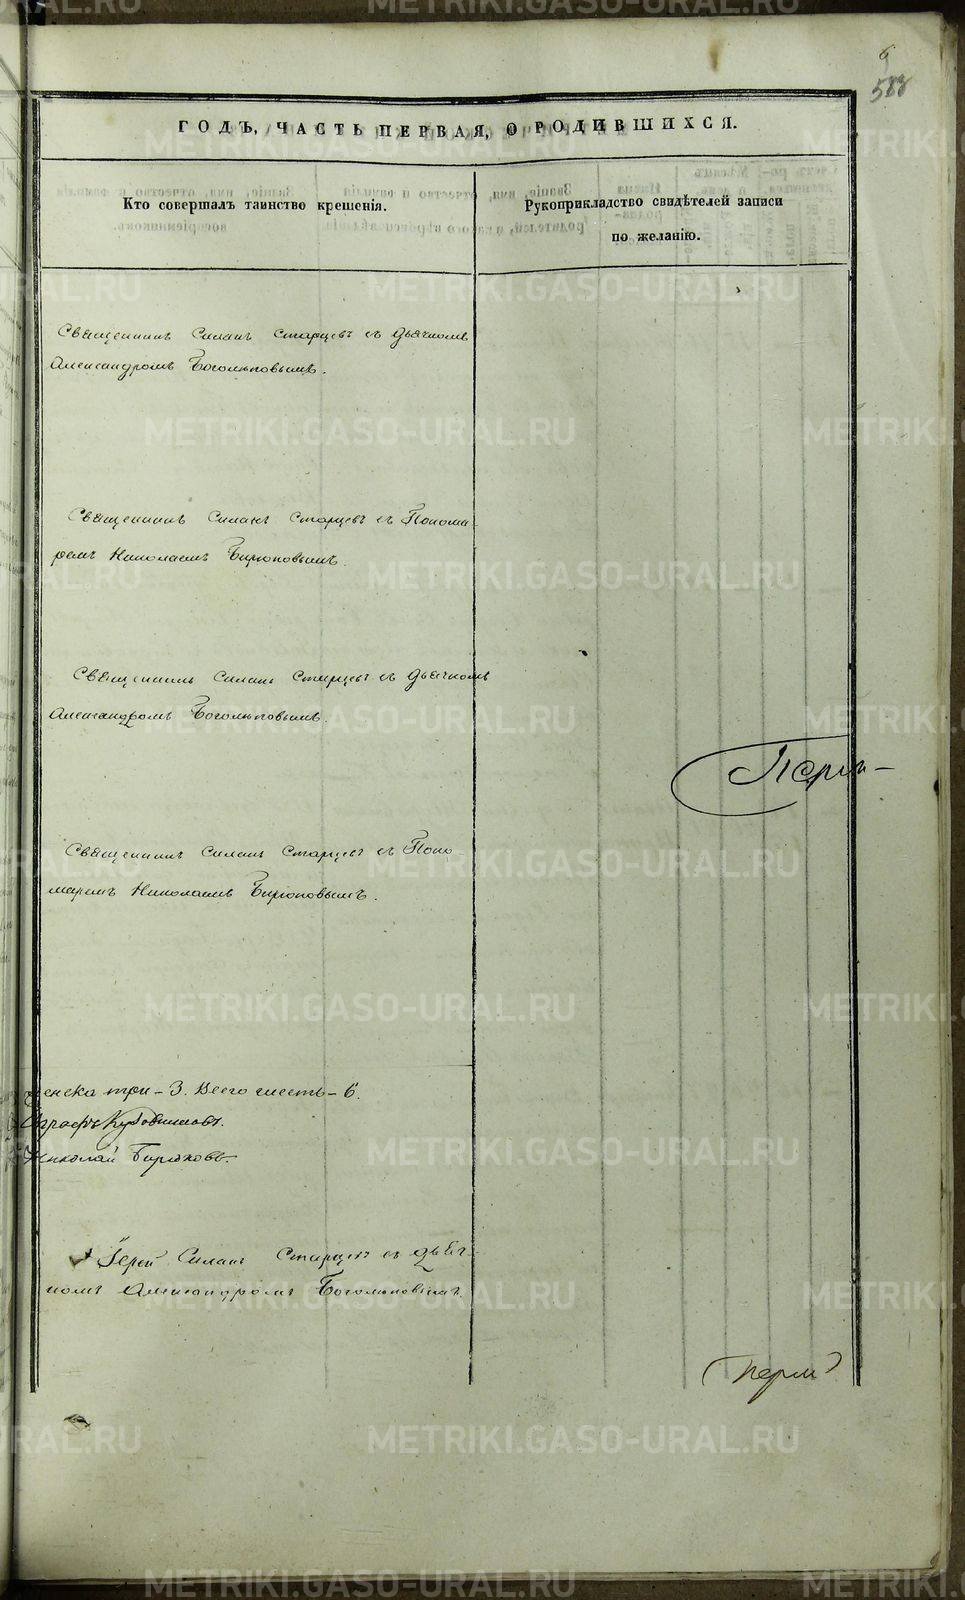 6
588
ГОДЪ, ЧАСТЬ ПЕРВАЯ, О РОДИВШИХСЯ.
Кто совершалъ таинство крещенія.
Рукоприкладство свидѣтелей записи
по желанію.
Священникъ Силанъ Старцевъ съ Дьячкомъ
Александромъ Боголѣповымъ.
Священникъ Силанъ Старцевъ съ Понома-
ремъ Николаемъ Бирюковымъ.
Священникъ Силанъ Старцевъ съ Дьячкомъ
Александромъ Боголѣповымъ.
Перм-
Священникъ Силанъ Старцевъ съ Поно
маремъ Николаемъ Бирюковымъ.
женска три - 3. Всего шесть - 6.
Николай Бирюковъ.
Іерей Силанъ Старцевъ съ дьяч-
комъ Александромъ Боголѣповымъ.
Перм
METRIKI.GASO-URAL.RU